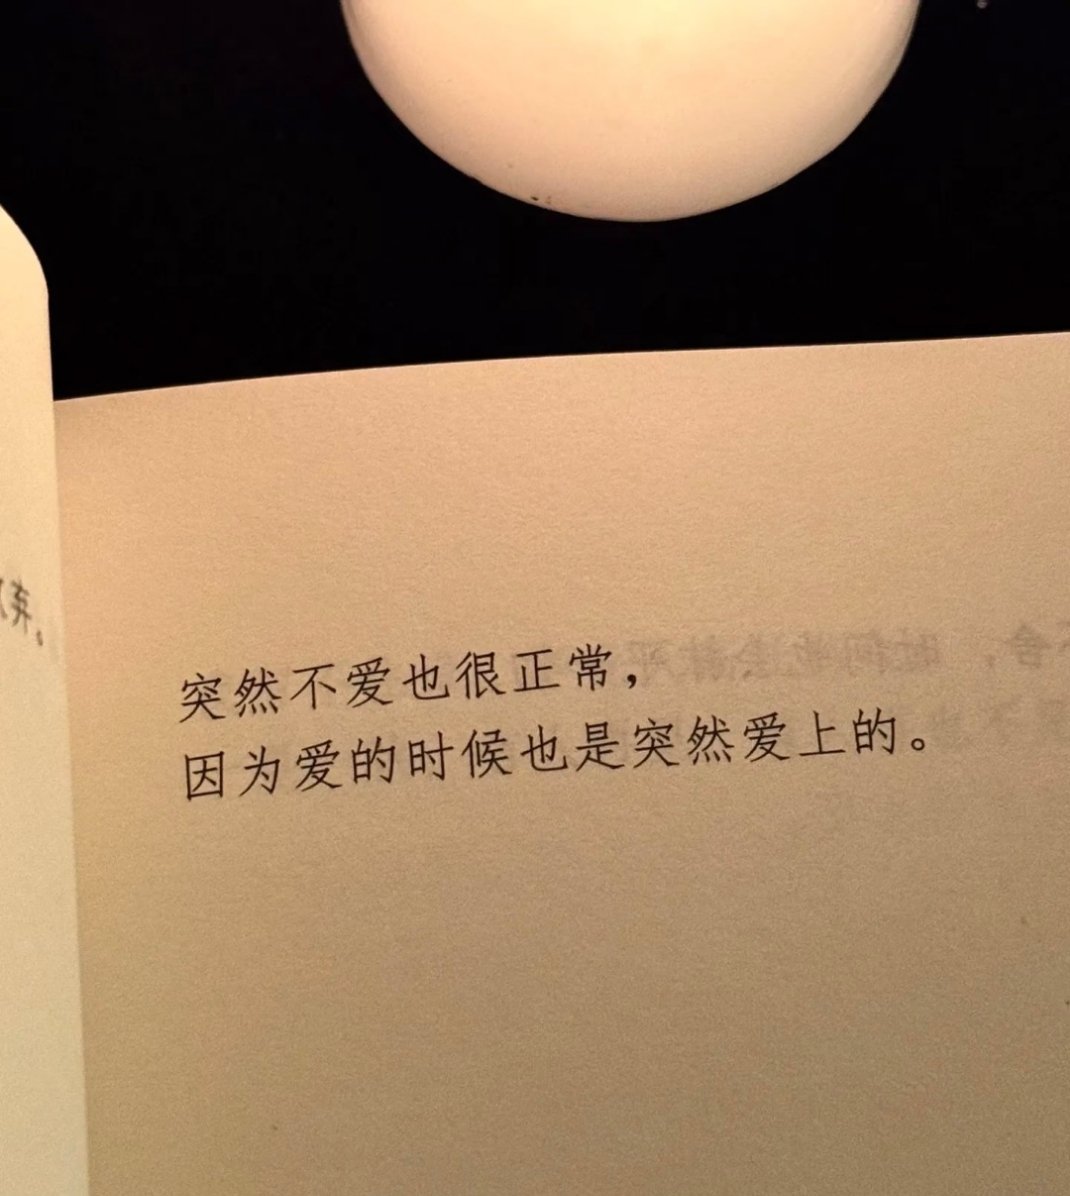 弃。
突然不爱也很正常，
因为爱的时候也是突然爱上的。